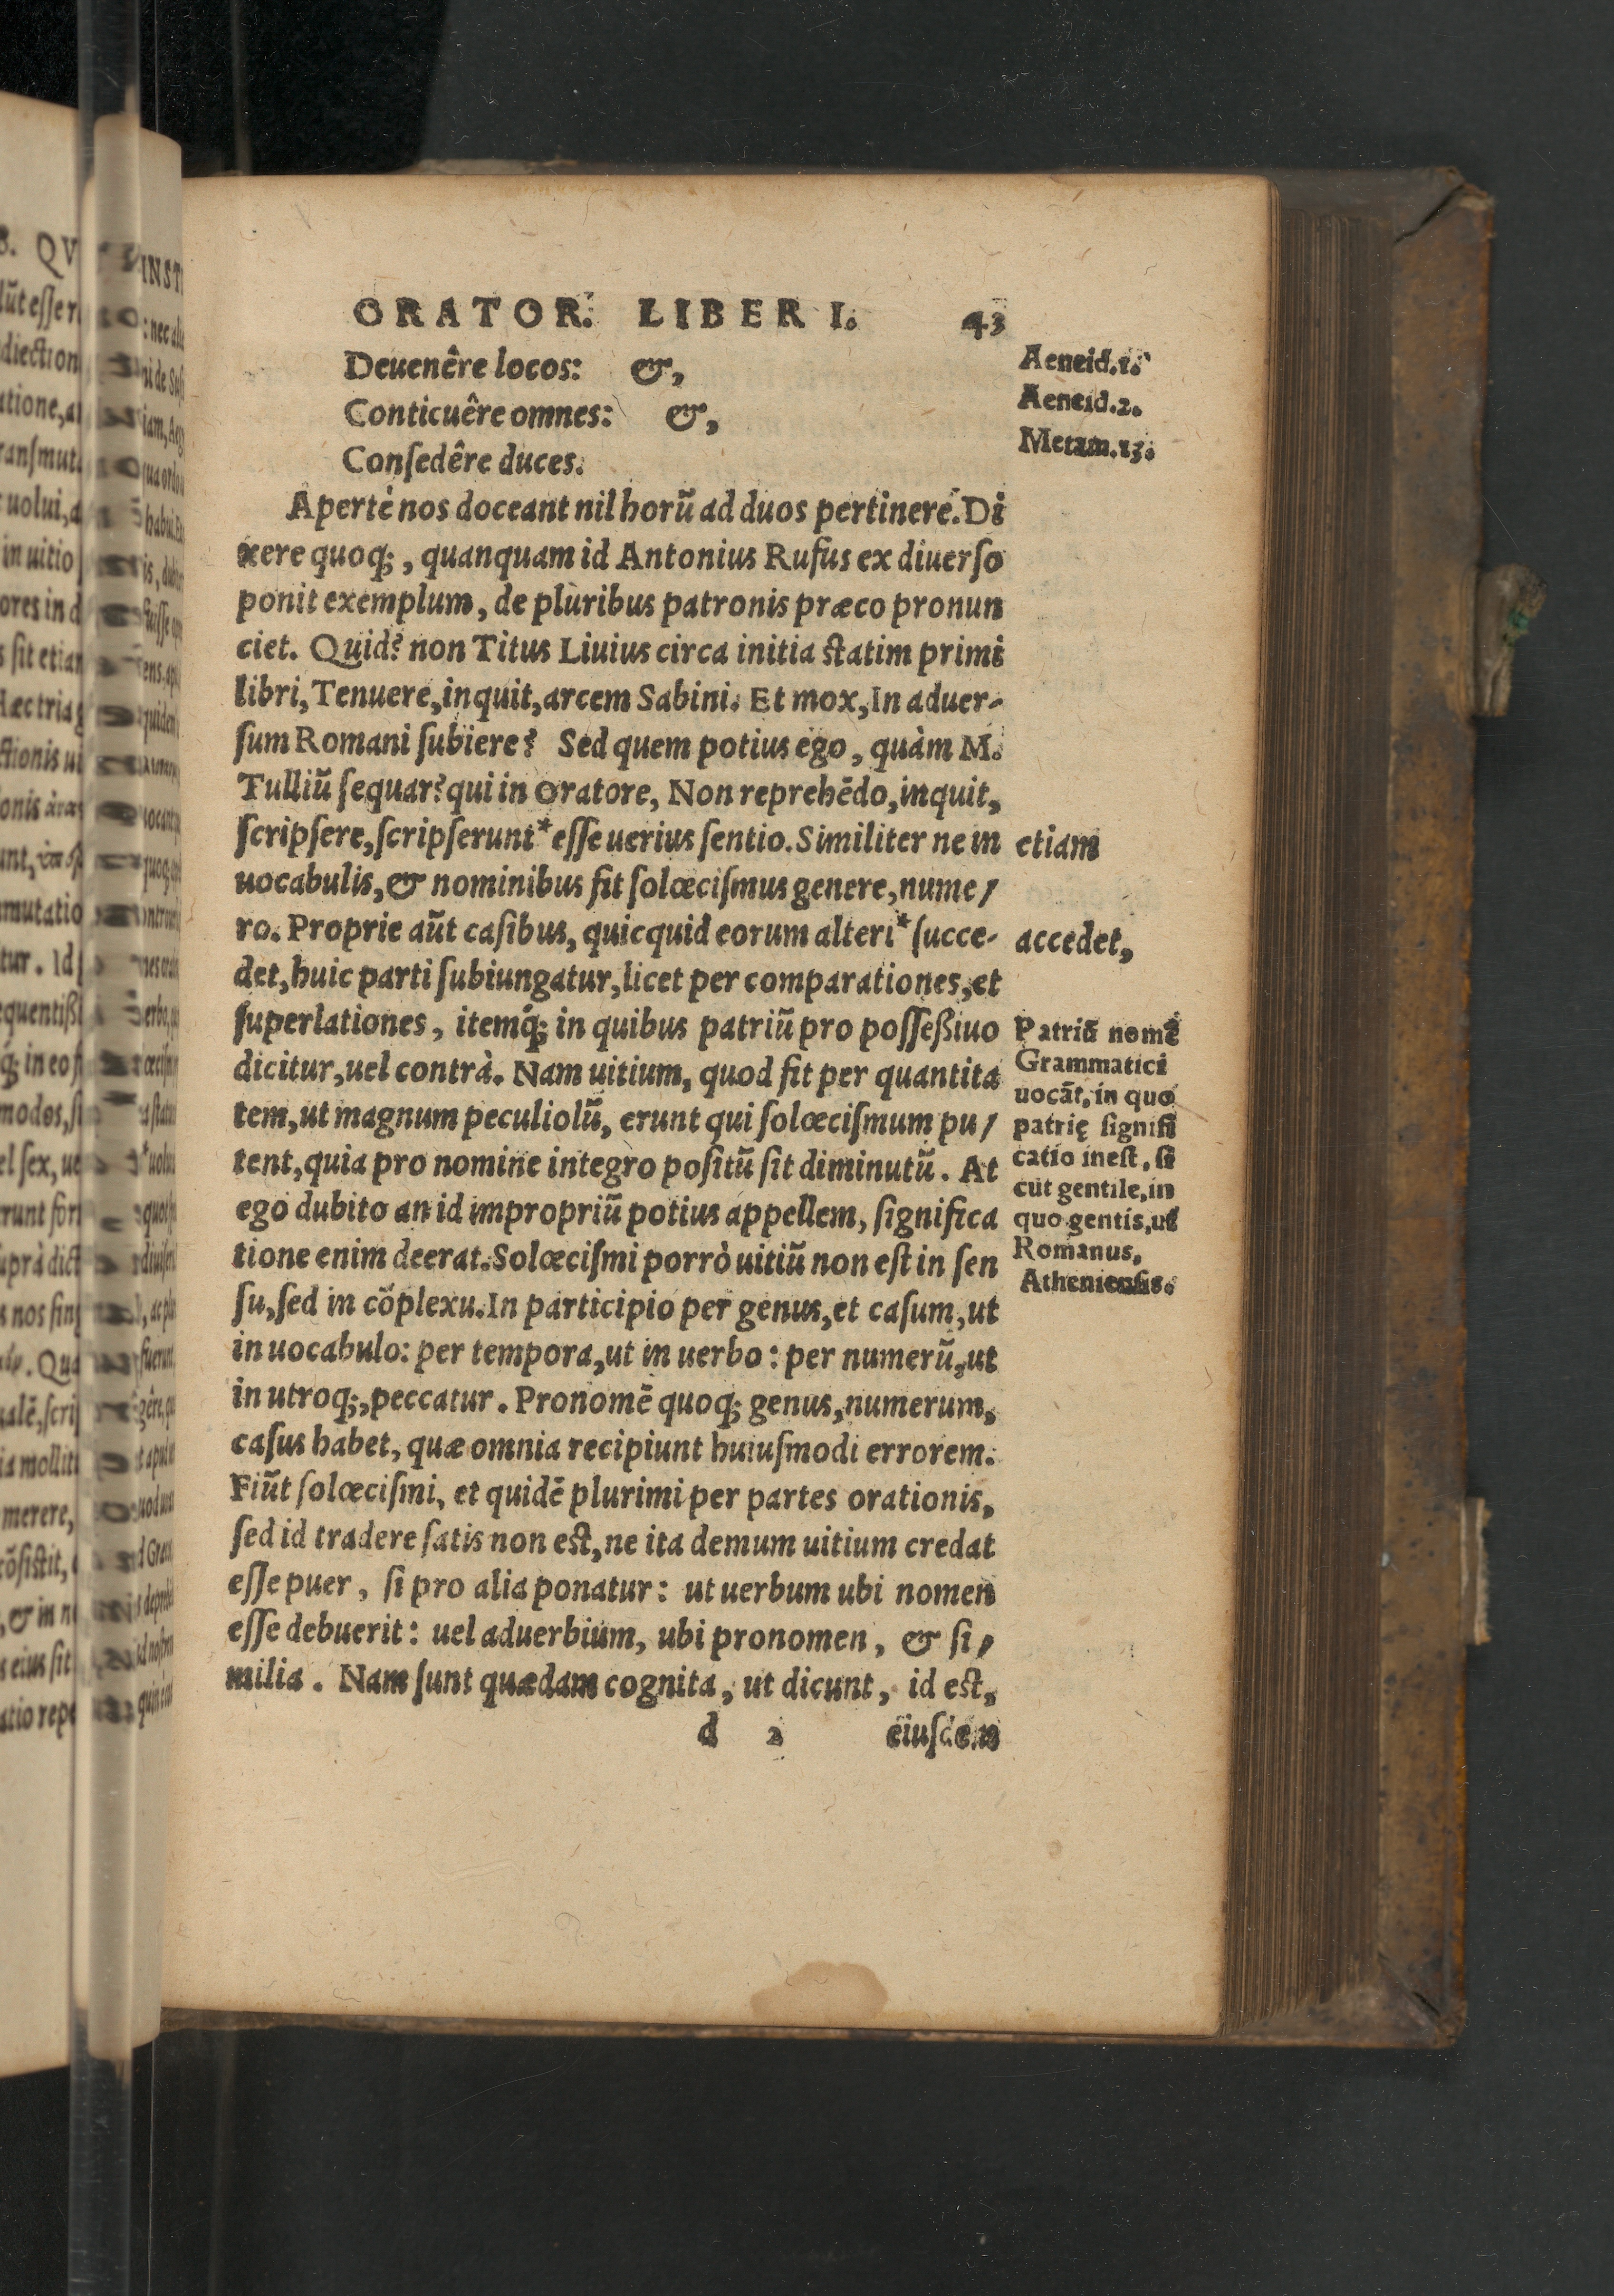 ORATOR. LIBER I. 43
Deuenêre locos: &,
Conticuêre omnes: &,
Conſedêre duces.
Apertè nos doceant nil horũ ad duos pertinere. Di
xere quoq;, quanquam id Antonius Rufus ex diuerſo
ponit exemplum, de pluribus patronis præco pronun
ciet. Quid? non Titus Liuius circa initia ſtatim primi
libri, Tenuere, inquit, arcem Sabini. Et mox, In aduer-
ſum Romani ſubiere? Sed quem potius ego, quàm M.
Tulliũ ſequar? qui in Oratore, Non reprehẽdo, inquit,
ſcripſere, ſcripſerunt* eſſe uerius ſentio. Similiter ne in
uocabulis, & nominibus fit ſolœciſmus genere, nume/
ro. Proprie aũt caſibus, quicquid eorum alteri* ſucce-
det, huic parti ſubiungatur, licet per comparationes, et
ſuperlationes, itemq́; in quibus patriũ pro poſſeßiuo
dicitur, uel contrà. Nam uitium, quod fit per quantita
tem, ut magnum peculiolũ, erunt qui ſolœciſmum pu/
tent, quia pro nomine integro poſitũ ſit diminutũ. At
ego dubito an id impropriũ potius appellem, ſignifica
tione enim deerat. Solœciſmi porrò uitiũ non eſt in ſen
ſu, ſed in cõplexu. In participio per genus, et caſum, ut
in uocabulo: per tempora, ut in uerbo: per numerũ, ut
in utroq;, peccatur. Pronomẽ quoq; genus, numerum,
caſus habet, quæ omnia recipiunt huiuſmodi errorem.
Fiũt ſolœciſmi, et quidẽ plurimi per partes orationis,
ſed id tradere ſatis non eſt, ne ita demum uitium credat
eſſe puer, ſi pro alia ponatur: ut uerbum ubi nomen
eſſe debuerit: uel aduerbium, ubi pronomen, & ſi/
milia. Nam ſunt quædam cognita, ut dicunt, id eſt,
d 2 eiuſdem
Aeneid.1.
Aeneid.2.
Metam.13.
etiam
accedet,
Patriũ nomẽ
Grammatici
uocãt, in quo
patrię ſignifi
catio ineſt, ſi
cut gentile, in
quo gentis, ut
Romanus,
Athenienſis.